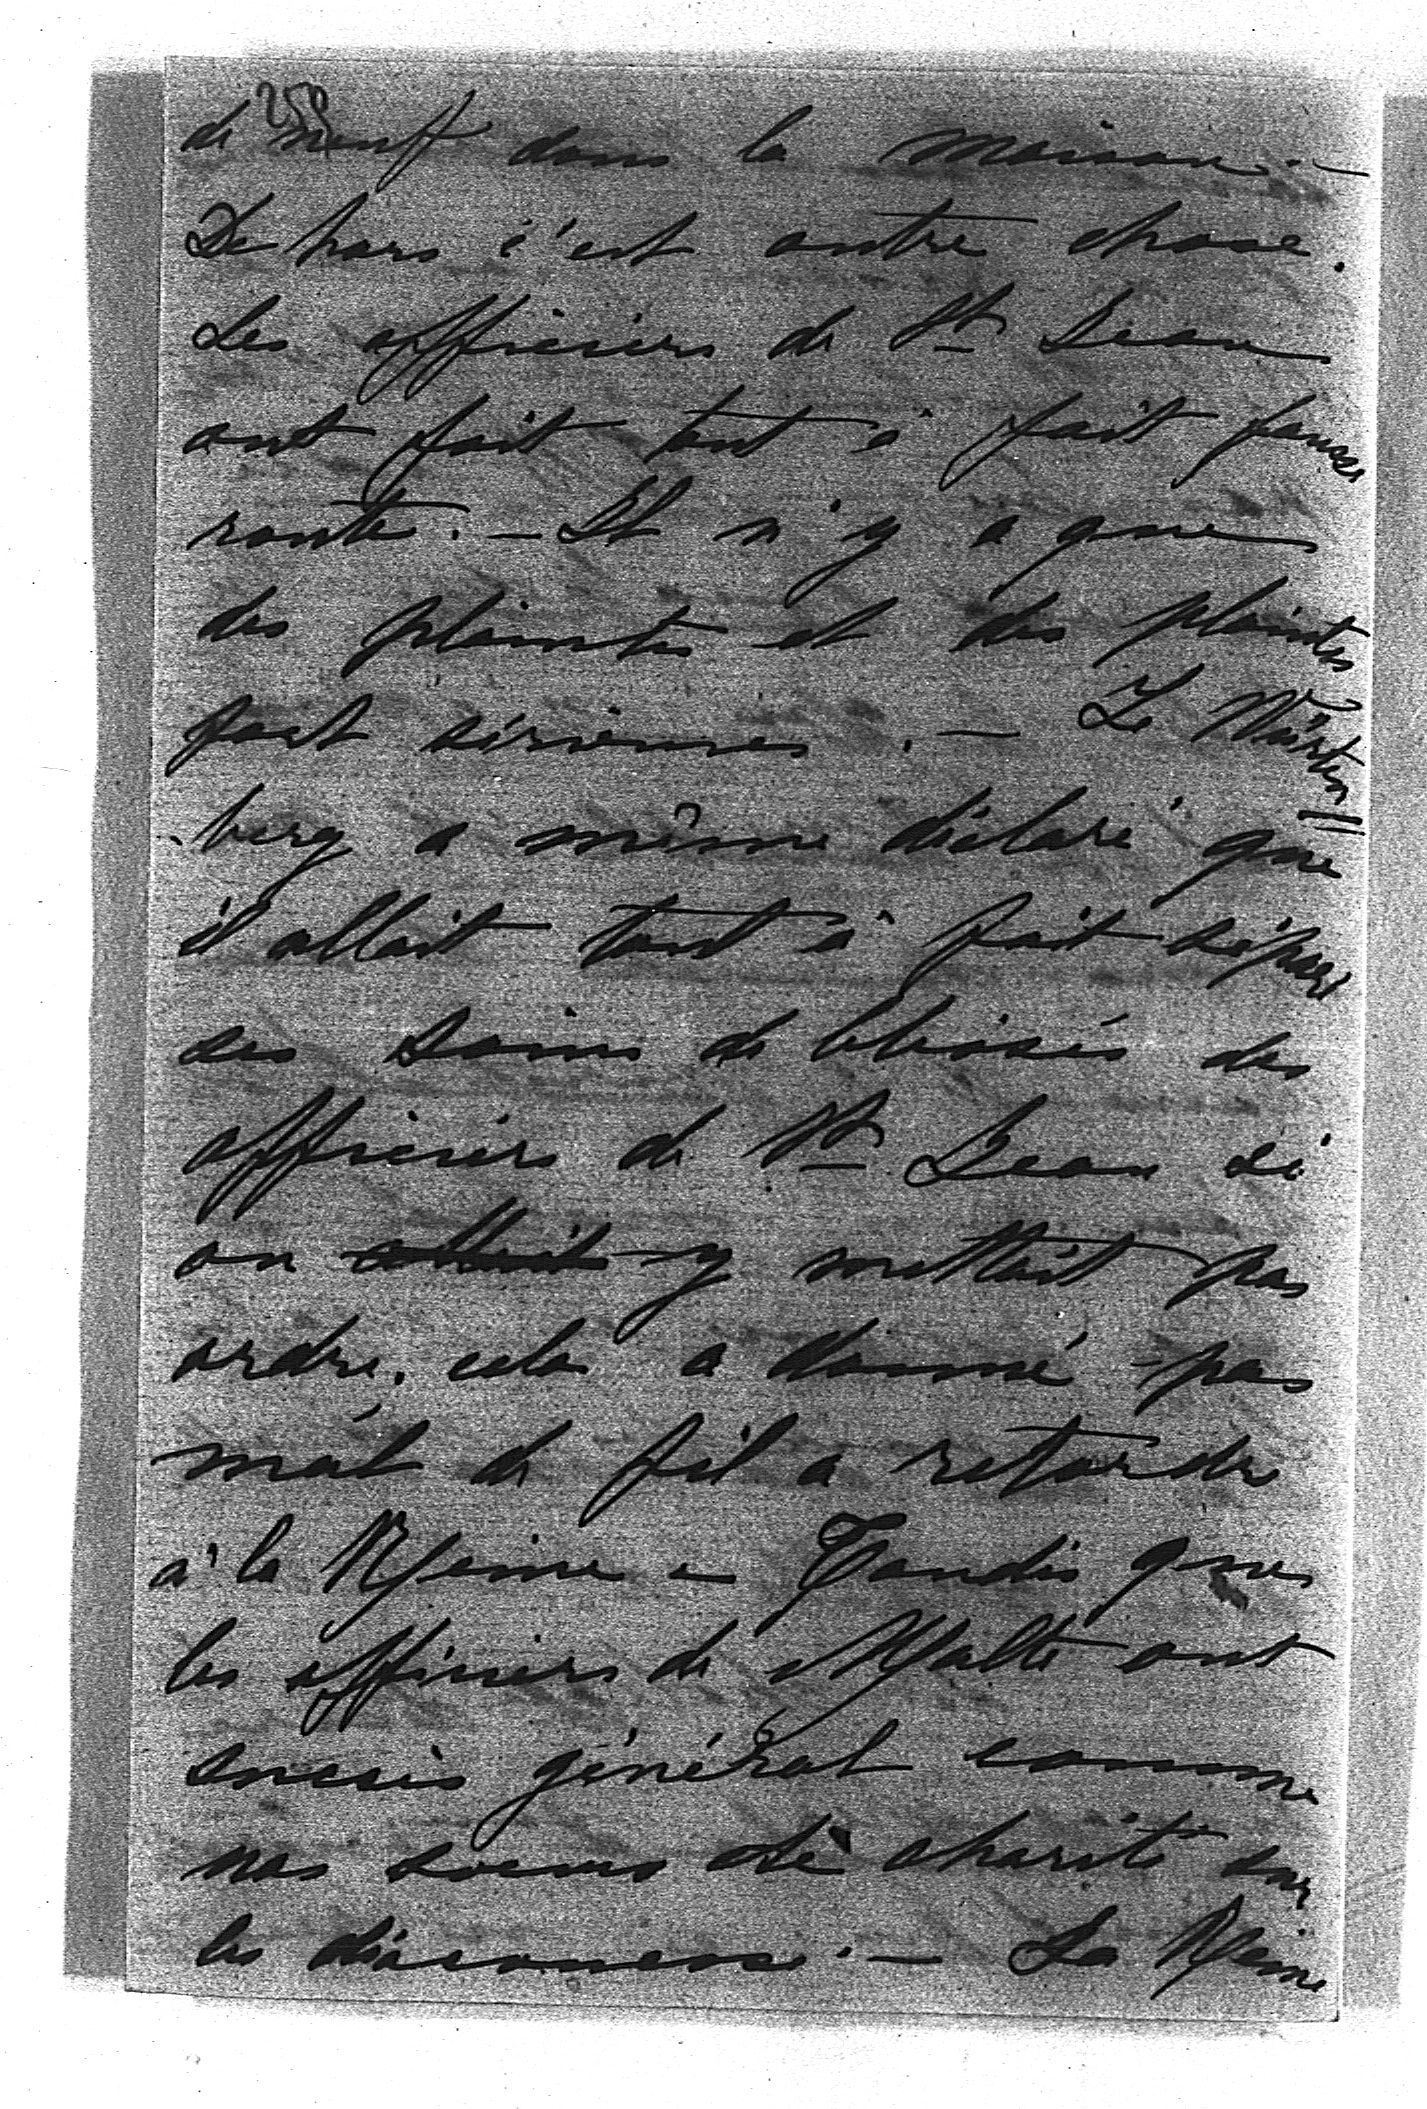 250
de neuf dans la maison. —
De hors c'est autre chose.
Les officiers de St Jean
ont fait tout à fait fausse
route. — Il n'y a que
des plaintes et des plaintes
fort sérieuses. — Le Würtem
berg a même déclaré que
il allait tout à fait séparer
ses soins de blessés des
officiers de St Jean si
on y mettait pas
ordre. cela a donné pas
mal de fil a retordre
à la Reine — Tandis que
les officiers de Malte ont
succès général comme
nos soeurs de charité sur
les diaconesses. — La Reine